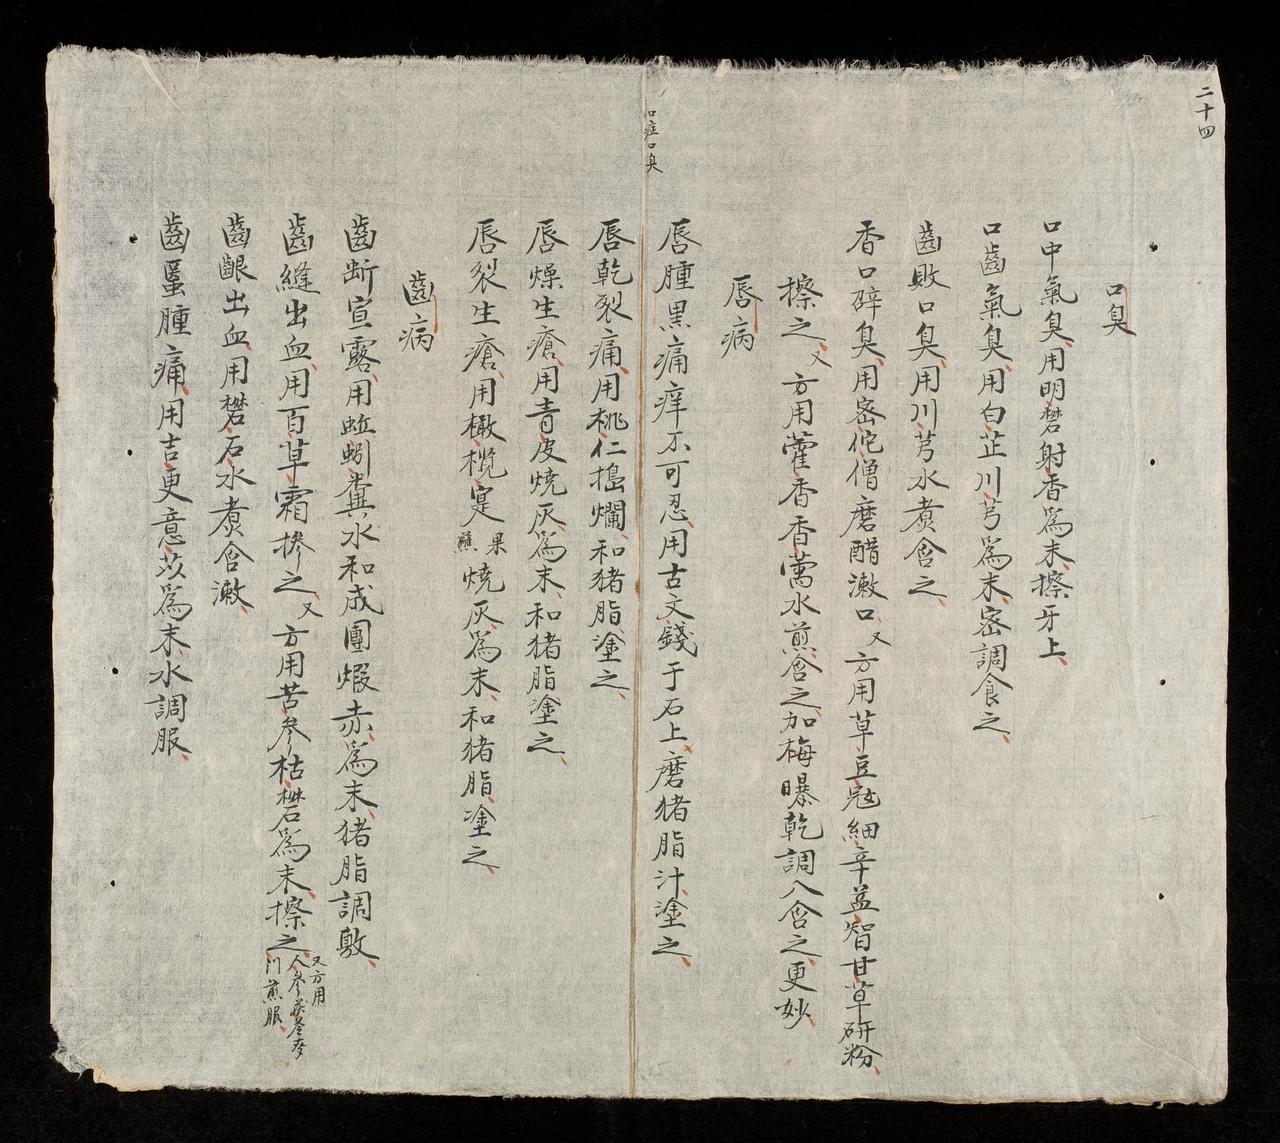 二十四
口臭
口中氣臭用明礬射香爲末擦牙上
口齒氣臭用白芷川芎爲末密調食之
齒敗口臭用川芎水煮含之
香口辟臭用密佗僧磨醋漱口又方用草豆蔻細辛益智甘草研粉
擦之又方用藿香香薷水煎含之加梅曝乾調入含之更妙
唇病
唇腫黑痛痒不可忍用古文錢于石上磨猪脂汁塗之
口症口臭
唇乾裂痛用桃仁搗爛和猪脂塗之
唇燥生瘡用青皮燒灰爲末和猪脂塗之
唇裂生瘡用橄欖寔果蕉燒灰爲末和猪脂塗之
齒病
齒斷宣露用蚯蚓糞水和成團煅赤爲末猪脂調敷
齒縫出血用百草霜摻之又方用苦參枯礬爲末擦之又方用人參茯苓麥門煎服
齒齦出血用礬石水煮含漱
齒䘌腫痛用吉更意苡爲末水調服